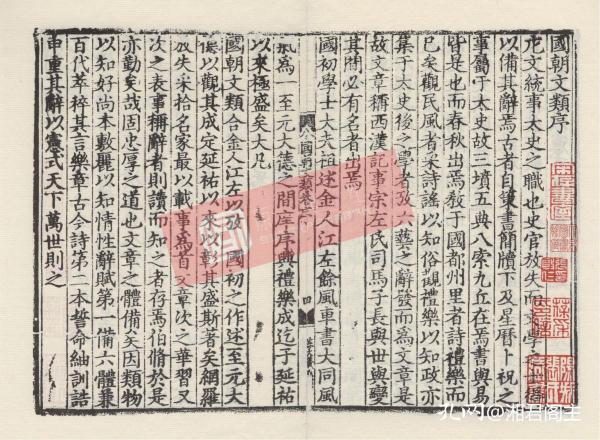 國朝文類序
元文統事太史之職也史官放失而文學之士得
以備其辭焉古者自策書簡牘下及星曆卜祝之
事屬于太史故三墳五典八索九丘在焉書與易
皆是也而春秋出焉教于國都州里者詩禮樂而
已矣觀民風者采詩謠以知俗觀禮樂以知政亦
集于太史後之學者攷六藝之辭發而爲文章是
故文章稱西漢記事宗左氏司馬子長與世與變
其間必有名者出焉
國初學士大夫祖述金人江左餘風車書大同風
氣爲一至元大德之間庠序興禮樂成迄于延祐
以來極盛矣大凡
國朝文類合金人江左以攷 國初之作述至元大
德以觀其成定延祐以來以彰其盛斯著矣網羅
放失采拾名家最以載事爲首文章次之華習又
次之表事稱辭者則讀而知之者存焉伯脩於是
亦勤矣哉固忠厚之道也文章之體備矣因類物
以知好尚本敷麗以知情性辭賦第一備六體兼
百代萃粹其言樂章古今詩第二本誓命紬訓誥
申重其辭以憲式天下萬世則之
孔网@湘君阁主